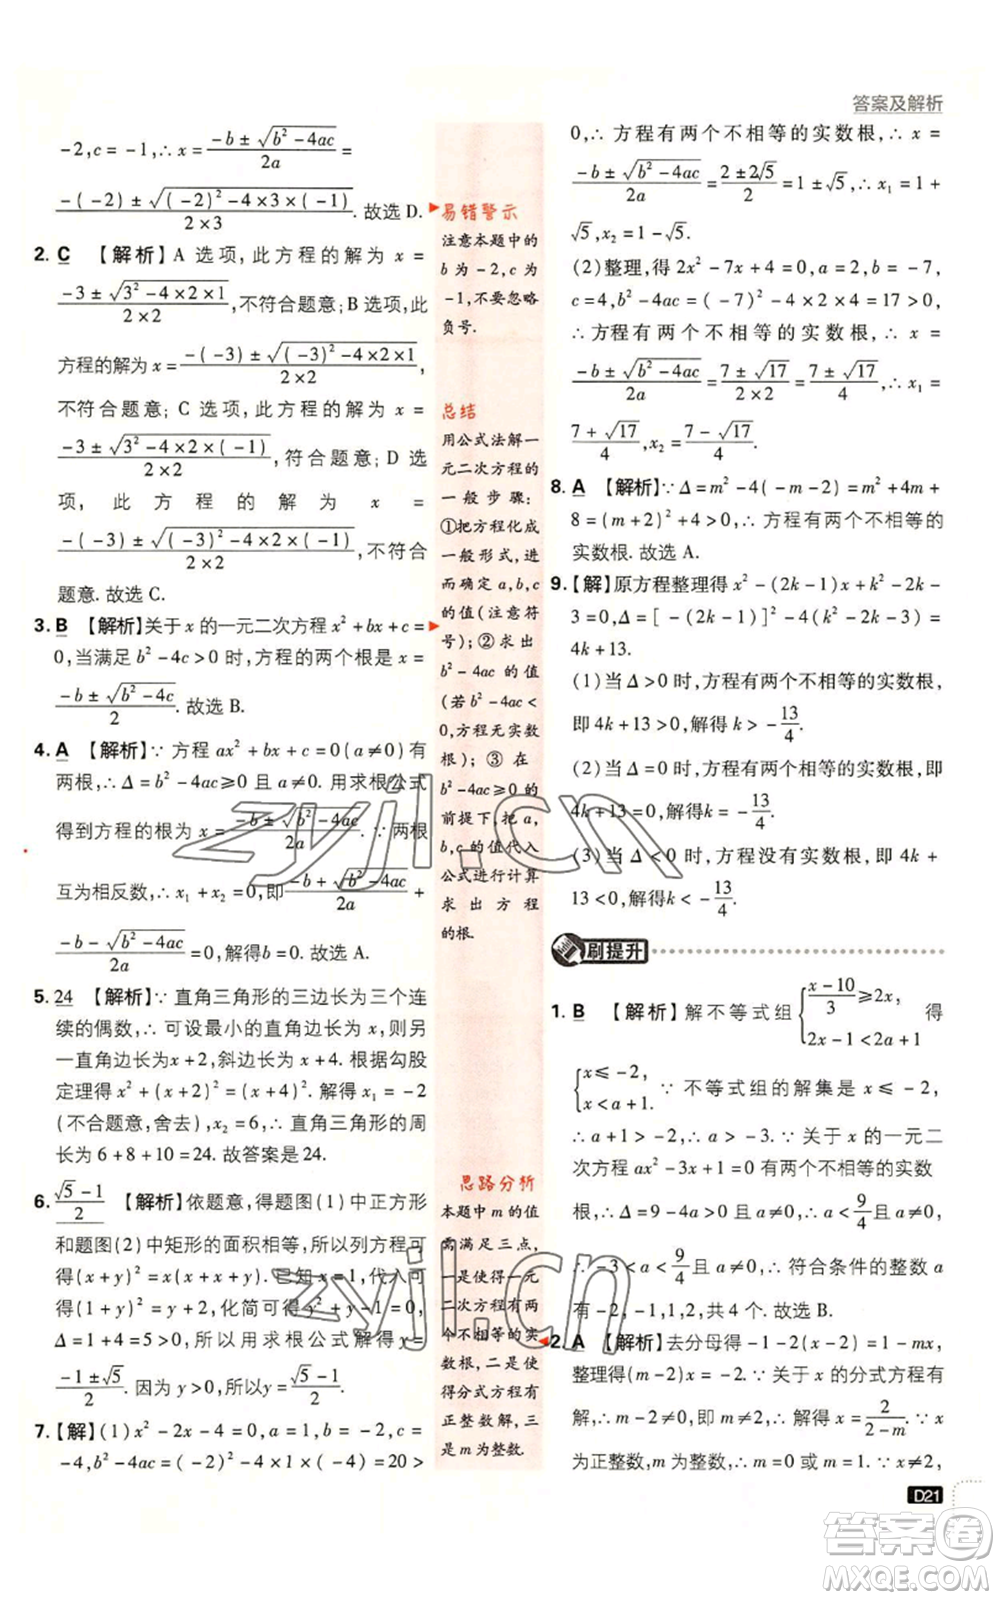 答案及解析
-2,c=-1,∴x=\frac{-b±\sqrt{b²-4ac}}{2a}=
\frac{-(-2)±\sqrt{(-2)²-4×3×(-1)}}{2×3}.故选 D.
2. C 【解析】A 选项,此方程的解为 x=
\frac{-3±\sqrt{3²-4×2×1}}{2×2},不符合题意;B 选项,此
方程的解为 x=\frac{-(-3)±\sqrt{(-3)²-4×2×1}}{2×2},
不符合题意;C 选项,此方程的解为 x=
\frac{-3±\sqrt{3²-4×2×(-1)}}{2×2},符合题意;D 选
项,此方程的解为 x=
\frac{-(-3)±\sqrt{(-3)²-4×2×(-1)}}{2×2},不符合
题意.故选 C.
3. B 【解析】关于 x 的一元二次方程 x²+bx+c=
0,当满足 b²-4c>0 时,方程的两个根是 x=
\frac{-b±\sqrt{b²-4c}}{2}.故选 B.
4. A 【解析】∵ 方程 ax²+bx+c=0(a≠0)有
两根,∴Δ=b²-4ac≥0 且 a≠0.用求根公式
得到方程的根为 x=\frac{-b±\sqrt{b²-4ac}}{2a}.∵两根
互为相反数,∴x₁+x₂=0,即\frac{-b+\sqrt{b²-4ac}}{2a}+
\frac{-b-\sqrt{b²-4ac}}{2a}=0,解得b=0.故选 A.
5. 24 【解析】∵直角三角形的三边长为三个连
续的偶数,∴可设最小的直角边长为 x,则另
一直角边长为 x+2,斜边长为 x+4.根据勾股
定理得 x²+(x+2)²=(x+4)².解得 x₁=-2
(不合题意,舍去),x₂=6,∴直角三角形的周
长为 6+8+10=24.故答案是 24.
6. \frac{\sqrt{5}-1}{2} 【解析】依题意,得题图(1)中正方形
和题图(2)中矩形的面积相等,所以列方程可
得(x+y)²=y(x+y+y).已知 x=1,代入可
得(1+y)²=y(1+y+y),化简可得 y²-y-1=0,
\frac{-1±\sqrt{5}}{2}.因为 y>0,所以 x=\frac{\sqrt{5}-1}{2}.
7.【解】(1)x²-2x-4=0,a=1,b=-2,c=
-4,b²-4ac=(-2)²-4×1×(-4)=20>
易错警示
注意本题中的
b 为 -2,c 为
-1,不要忽略
负号.
总结
用公式法解一
元二次方程的
一般步骤:
①把方程化成
一般形式,进
而确定 a,b,c
的值(注意符
号);②求出
b²-4ac 的值
(若 b²-4ac<
0,方程无实数
根);③在
b²-4ac≥0 的
前提下,把 a,
b,c 的值代入
公式进行计算
求出方程
的根.
思路分析
本题中 m 的值
需满足三点,
一是使得一元
二次方程有两
个不相等的实
数根,二是使
得分式方程有
正整数解,三
是 m 为整数.
0,∴方程有两个不相等的实数根,∴x=
\frac{-b±\sqrt{b²-4ac}}{2a}=\frac{2±2\sqrt{5}}{2}=1±\sqrt{5},∴x₁=1+
\sqrt{5},x₂=1-\sqrt{5}.
(2)整理,得 2x²-7x+4=0,a=2,b=-7,
c=4,b²-4ac=(-7)²-4×2×4=17>0,
∴方程有两个不相等的实数根,∴x=
\frac{-b±\sqrt{b²-4ac}}{2a}=\frac{7±\sqrt{17}}{2×2}=\frac{7±\sqrt{17}}{4},∴x₁=
\frac{7+\sqrt{17}}{4},x₂=\frac{7-\sqrt{17}}{4}.
8. A 【解析】∵Δ=m²-4(-m-2)=m²+4m+
8=(m+2)²+4>0,∴方程有两个不相等的
实数根.故选 A.
9.【解】原方程整理得 x²-(2k-1)x+k²-2k-
3=0,Δ=[-(2k-1)]²-4(k²-2k-3)=
4k+13.
(1)当 Δ>0 时,方程有两个不相等的实数根,
即 4k+13>0,解得 k>-\frac{13}{4}.
(2)当 Δ=0 时,方程有两个相等的实数根,即
4k+13=0,解得k=-\frac{13}{4}.
(3)当 Δ<0 时,方程没有实数根,即 4k+
13<0,解得k<-\frac{13}{4}.
刷提升
1. B 【解析】解不等式组{\frac{x-10}{3}≥2x, 2x-1<2a+1 得
{x≤-2, x<a+1. ∵不等式组的解集是 x≤-2,
∴a+1>-2,∴a>-3.∵关于 x 的一元二
次方程 ax²-3x+1=0 有两个不相等的实数
根,∴Δ=9-4a>0 且 a≠0,∴a<\frac{9}{4} 且 a≠0,
∴-3<a<\frac{9}{4} 且 a≠0,∴符合条件的整数 a
有-2,-1,1,2,共 4 个.故选 B.
2. A 【解析】去分母得-1-2(x-2)=1-mx,
整理得(m-2)x=-2.∵关于 x 的分式方程有
解,∴m-2≠0,即 m≠2,解得 x=\frac{2}{2-m}.∵x
为正整数,∴2-m>0,且 x≠2,
D21
zyjl.cn
zyjl.cn
答案圈
MXQE.COM